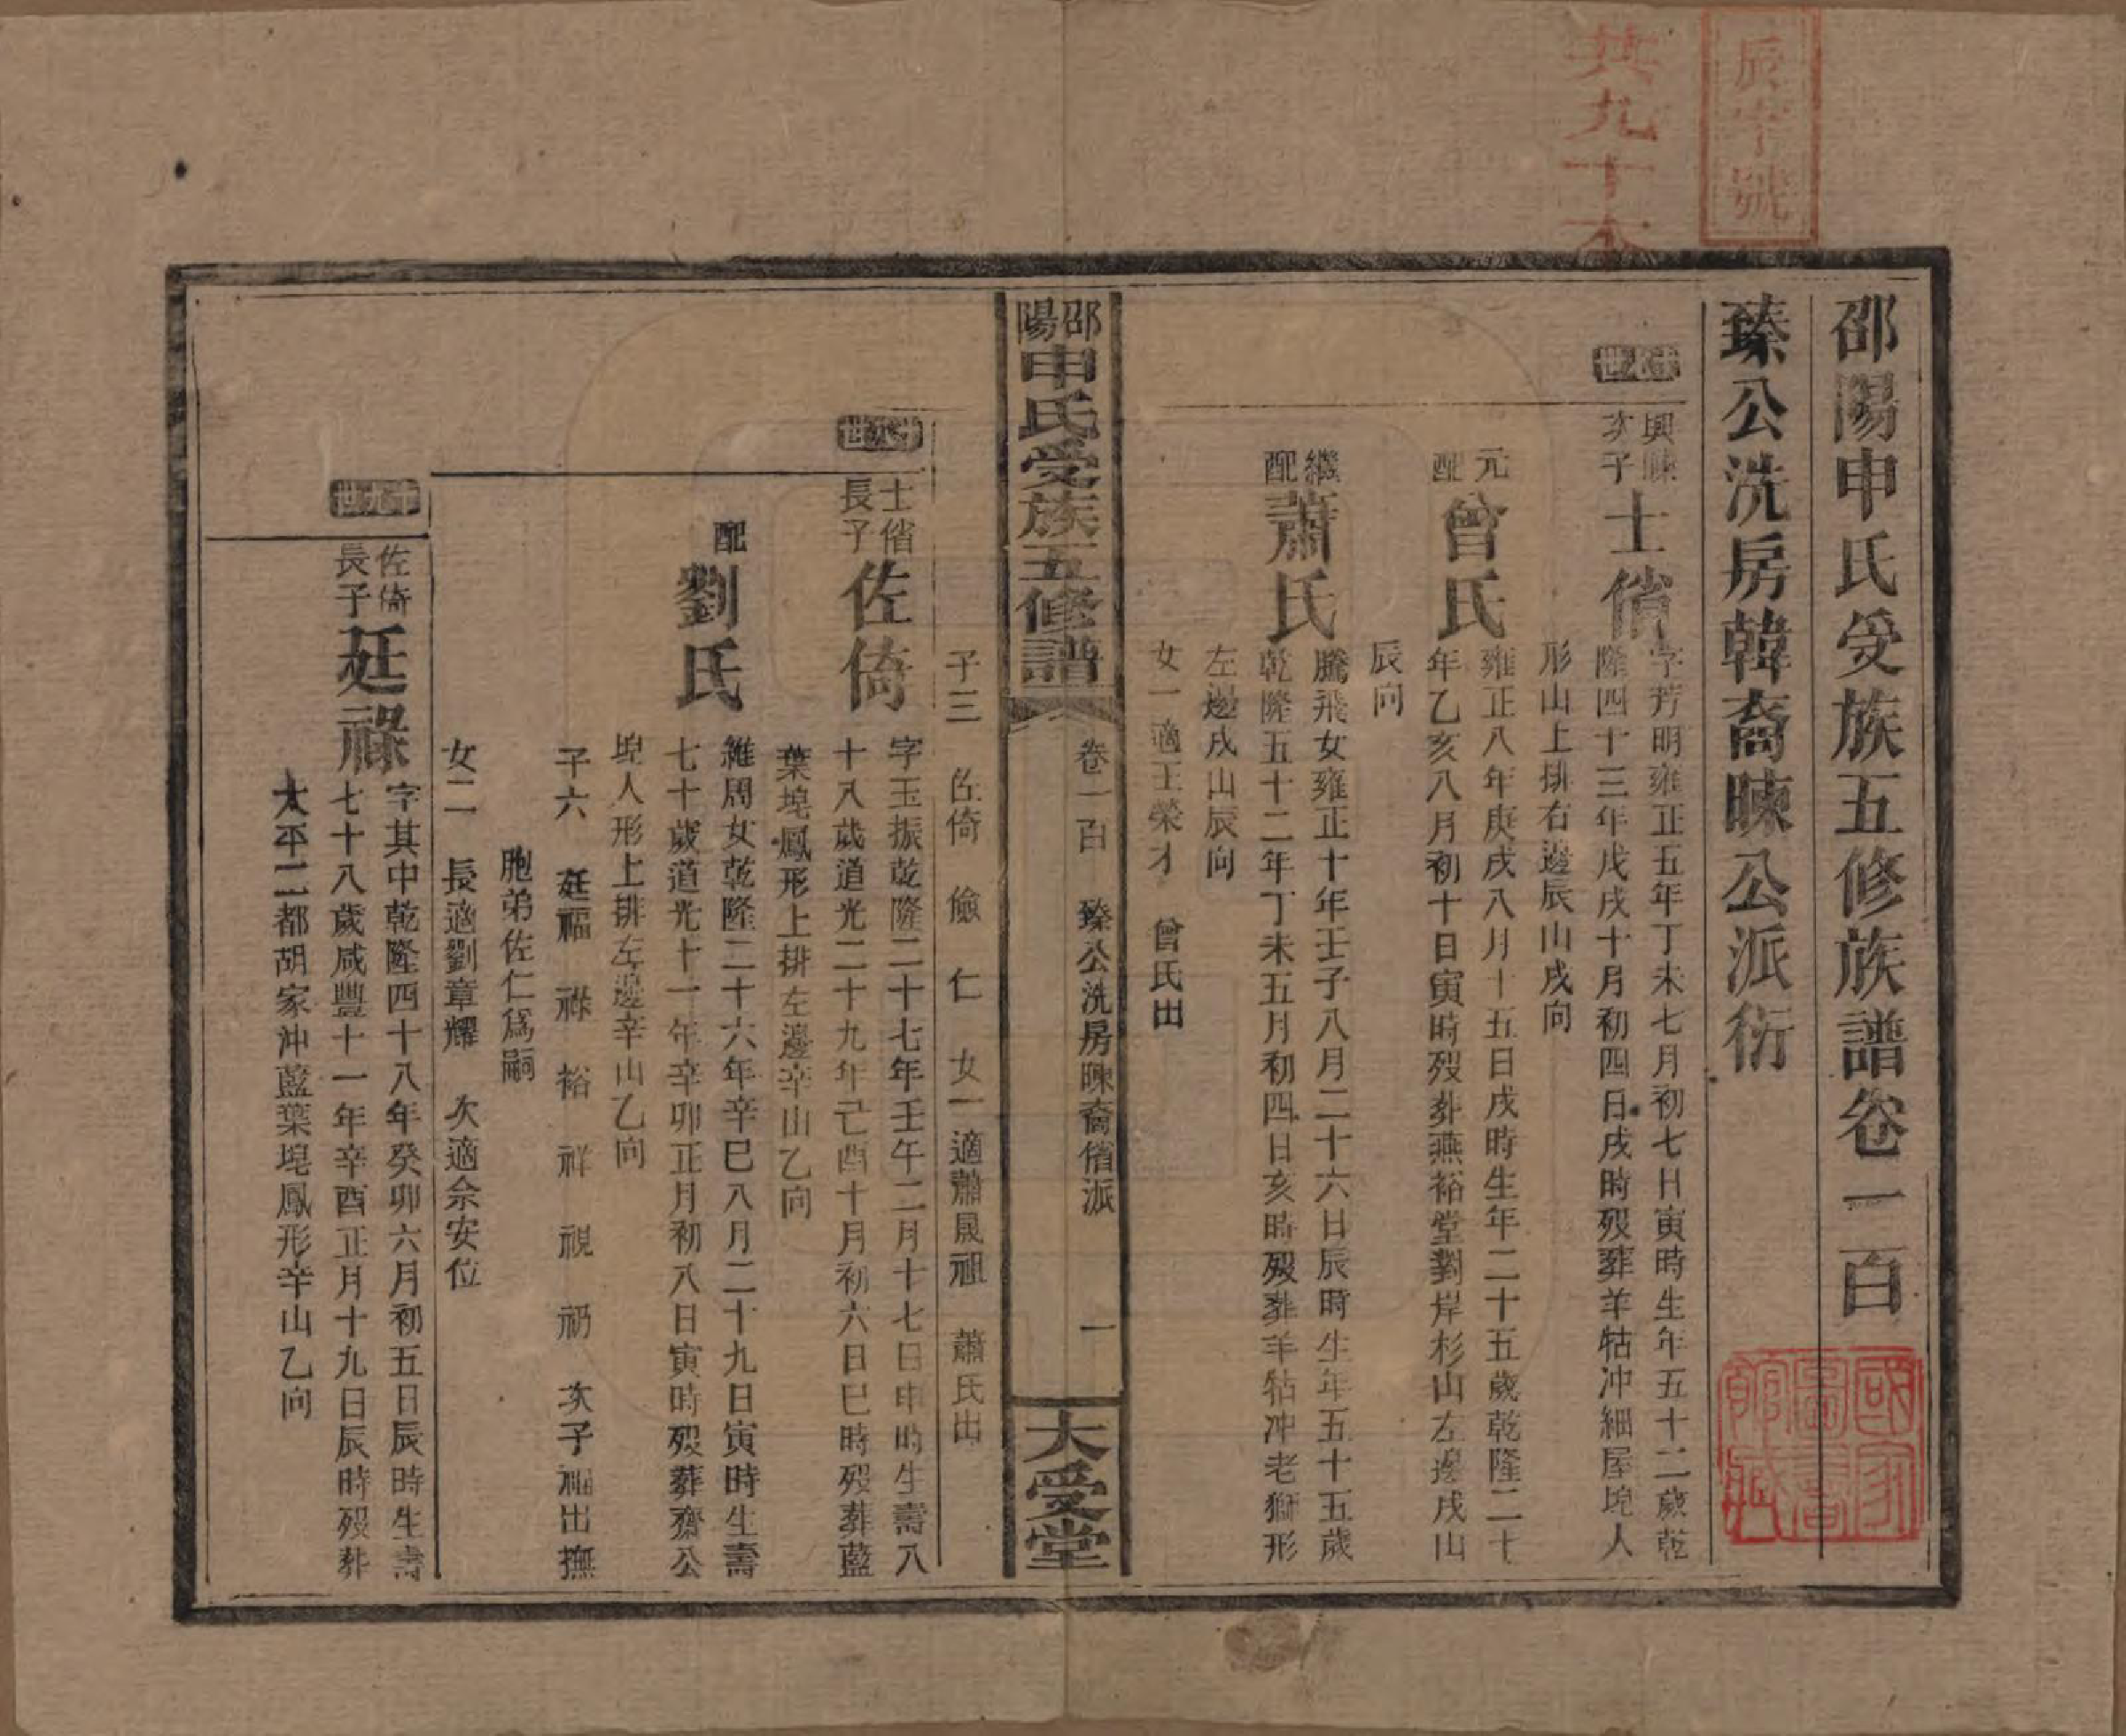 共九十本
辰字號
邵陽申氏受族五修族譜卷一百
臻公洗房韓裔暕公派衍
國家圖書館藏
十七世
興暕次子
士偗
字芳明雍正五年丁未七月初七日寅時生年五十二歲乾
隆四十三年戊戌十月初四日戌時歿葬羊牯冲細屋垸人
形山上排右邊辰山戌向
元配
曾氏
雍正八年庚戌八月十五日戌時生年二十五歲乾隆二十
年乙亥八月初十日寅時歿葬燕裕堂對岸杉山左邊戌山
辰向
繼配
蕭氏
騰飛女雍正十年壬子八月二十六日辰時生年五十五歲
乾隆五十二年丁未五月初四日亥時歿葬羊牯冲老獅形
左邊戌山辰向
女一適王榮才 曾氏出
邵陽申氏受族五修譜
卷一百 臻公洗房暕裔偗派 一
大受堂
子三 佐倚 儉 仁 女一適蕭晟祖 蕭氏出
十八世
士偗長子
佐倚
字玉振乾隆二十七年壬午二月十七日申時生壽八
十八歲道光二十九年己酉十月初六日巳時歿葬藍
葉垸鳳形上排左邊辛山乙向
配
劉氏
維周女乾隆二十六年辛巳八月二十九日寅時生壽
七十歲道光十一年辛卯正月初八日寅時歿葬齋公
垸人形上排左邊辛山乙向
子六 廷福 祿 裕 祥 視 礽 次子福出撫
胞弟佐仁爲嗣
女二 長適劉章耀 次適佘安位
十九世
佐倚長子
廷祿
字其中乾隆四十八年癸卯六月初五日辰時生壽
七十八歲咸豐十一年辛酉正月十九日辰時歿葬
太平二都胡家沖藍葉垸鳳形辛山乙向